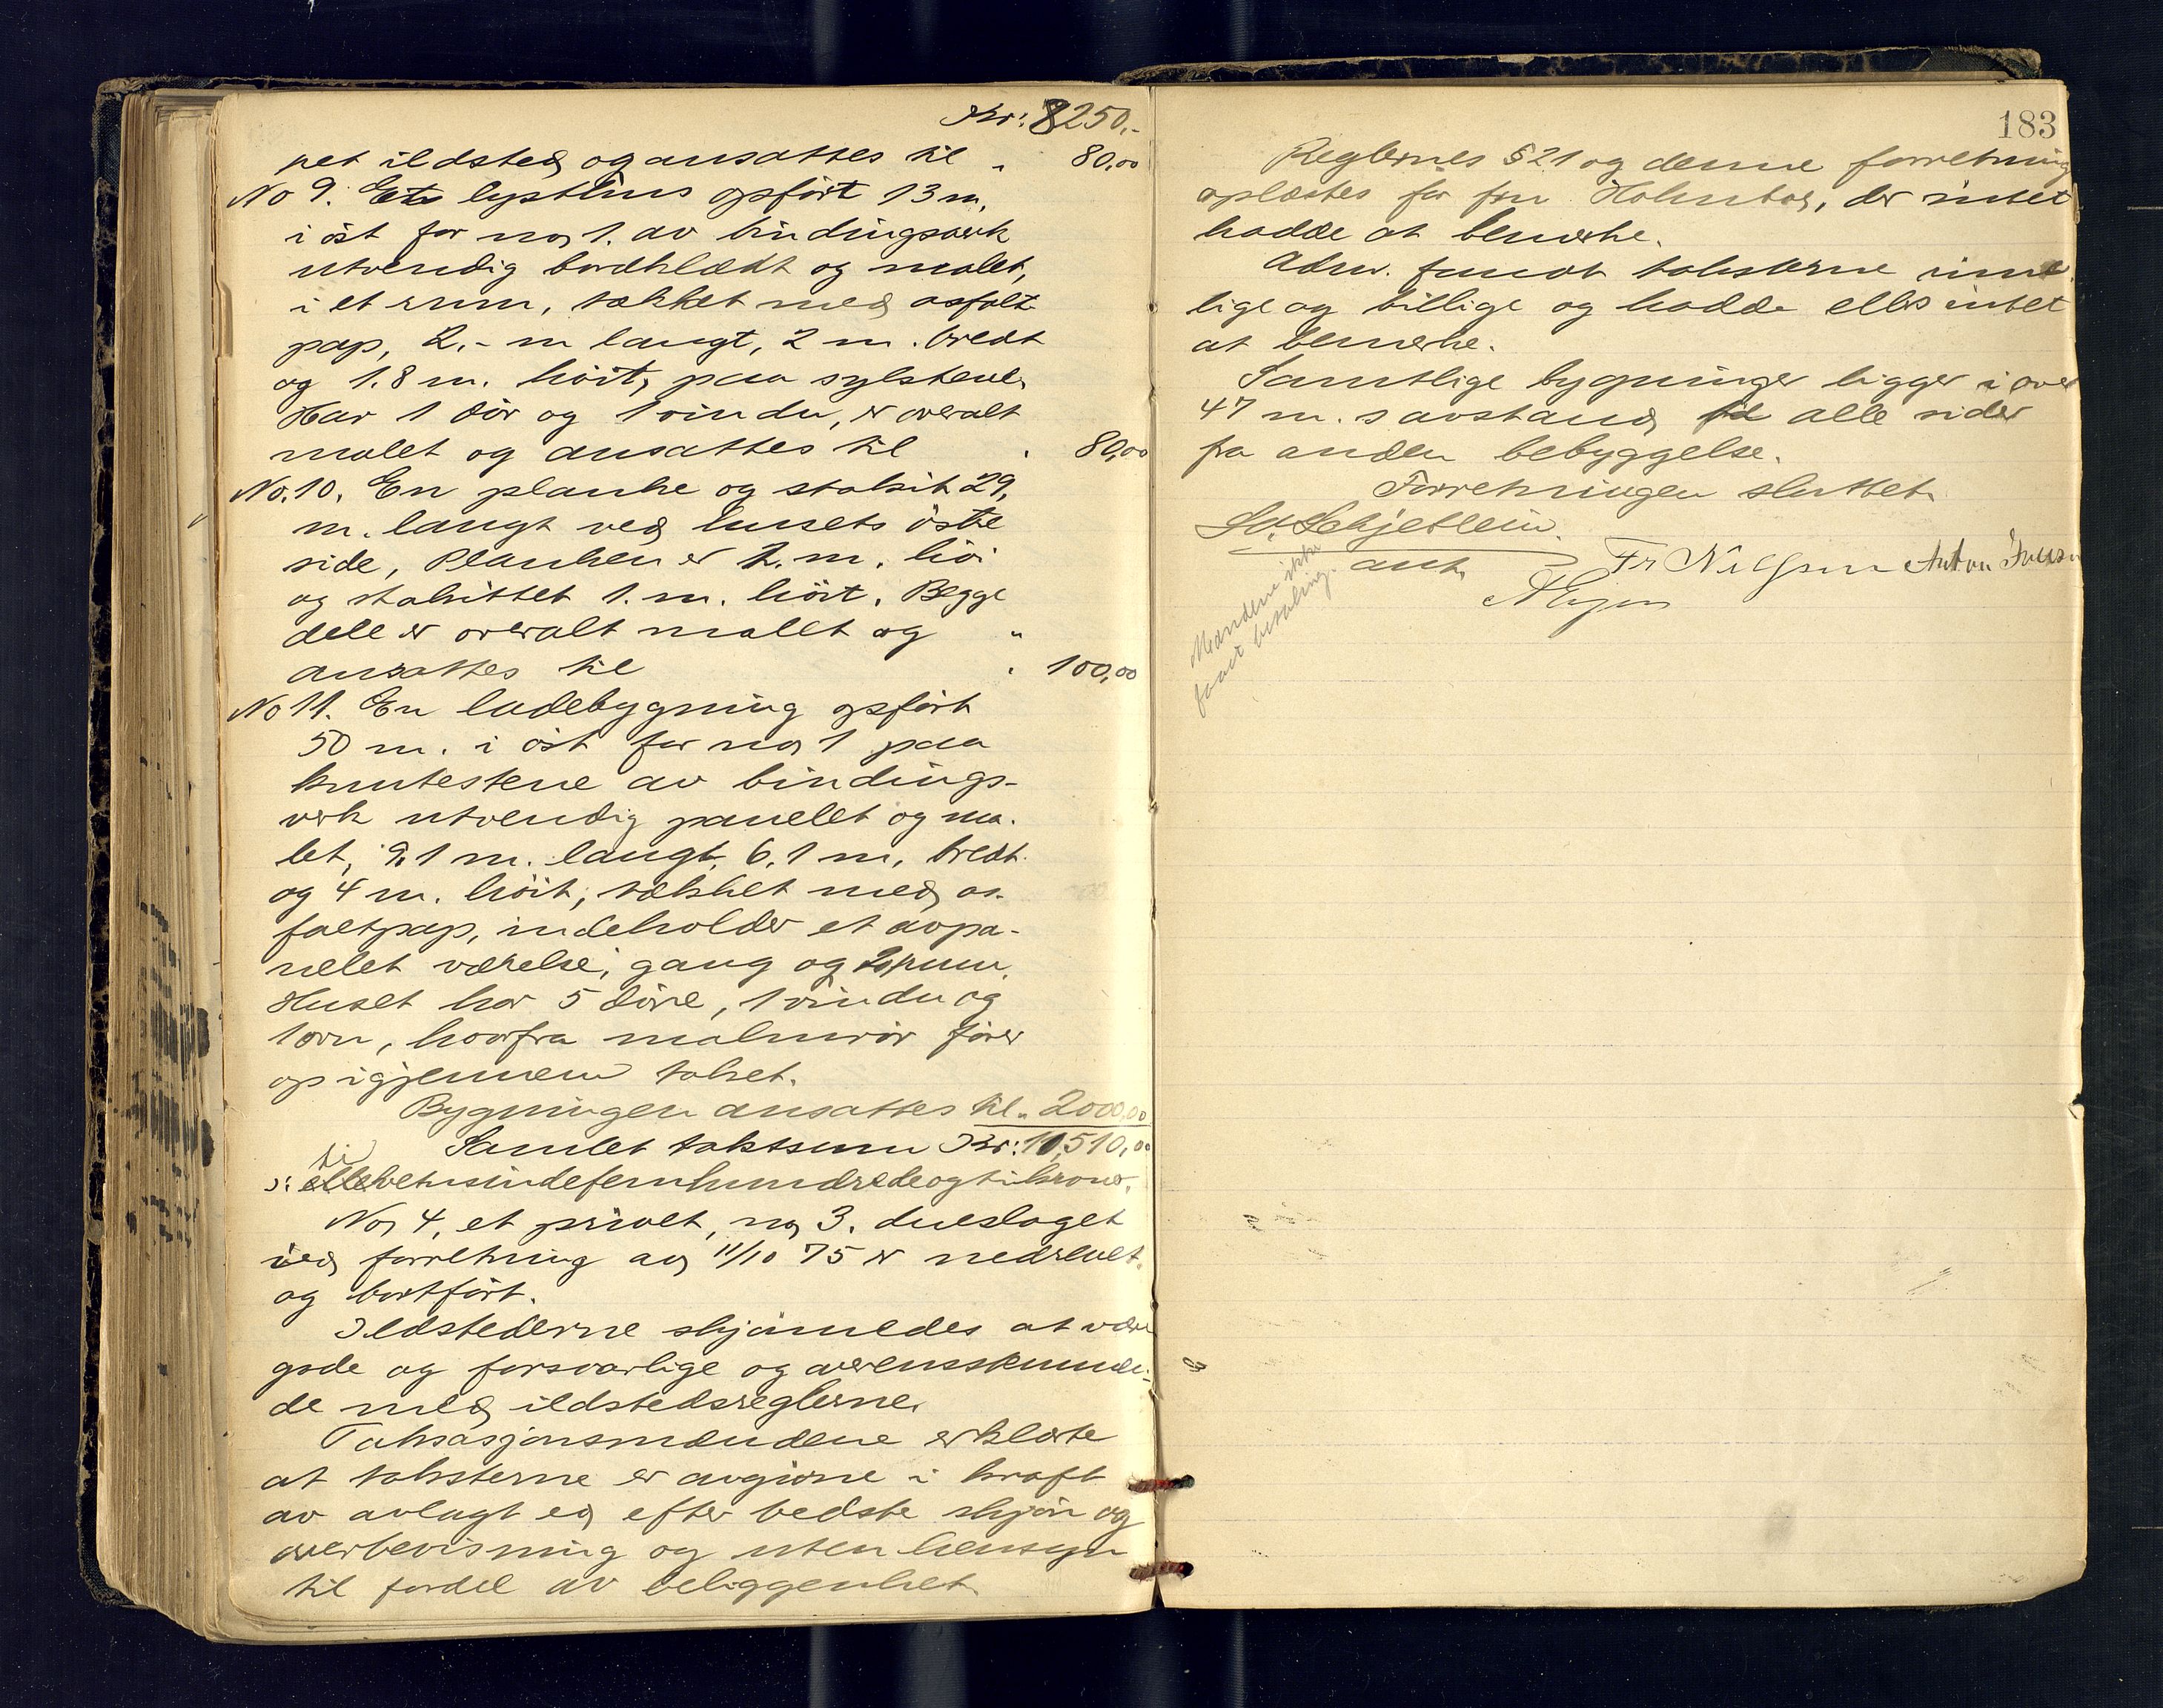 Kr: 8250,-
pet ildsted og ansattes til „ 80,00
No 9. Et lysthus opført 13 m.
i øst for no 1. av bindingsverk
utvendig bordklædt og malet,
i et rum, tækket med asfalt
pap, 2,- m langt, 2 m. bredt
og 1.8 m. høit, paa sylstene.
Har 1 dør og 1 vindu, er overalt
malet og ansattes til „ 80,00
No. 10. En planke og stakit 29,
m. langt ved husets østre
side, Planken er 2. m. høi
og stakittet 1. m. høit. Begge
dele er overalt malet og „
ansattes til „ 100,00
No 11. En ladebygning opført
50 m. i øst for no 1 paa
knutestene av bindings-
verk utvendig panelet og ma-
let, 9,1 m. langt, 6,1 m. bredt
og 4 m. høit, tækket med as-
faltpap, indeholder et avpa-
nelet værelse, gang og 2 rum.
Huset har 5 døre, 1 vindu og
1 ovn, hvorfra malmrør fører
op igjennem taket.
Bygningen ansattes til „ 2000,00
Samlet takstsum Kr: 10,510,00
ti
ɔ: ellevetusindefemhundredeogtikroner.
No 4, et privet, no 3. dueslaget
ved forretning av 11/10 75 er nedrevet
og bortført.
Ildstederne skjønnedes at være
gode og forsvarlige og overensstemmen-
de med ildstedsreglerne.
Taksasjonsmændene erklærte
at taksterne er avgivne i kraft
av avlagt ed efter bedste skjøn og
overbevisning og uten hensyn
til fordel av beliggenhet.
183
Reglernes § 21 og denne forretning
oplæstes for fru Holmboe, der intet
hadde at bemerke.
Adm. fandt taksterne rime-
lige og billige og hadde ellers intet
at bemerke.
Samtlige bygninger ligger i over
47 m.s avstand til alle sider
fra anden bebyggelse.
Forretningen sluttet.
Schjetlein.
ast. Fr Nilssen Anton
Mændene ikke
faaet betaling.